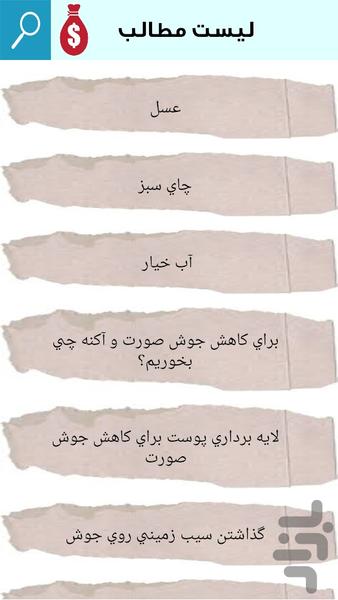 لیست مطالب
$
عسل
چاي سبز
آب خيار
براي کاهش جوش صورت و آکنه چي
بخوريم؟
لايه برداري پوست براي کاهش جوش
صورت
گذاشتن سيب زميني روي جوش
بازار